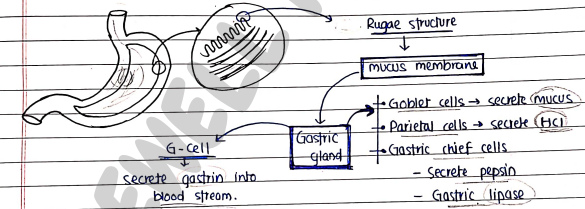 Rugae structure
mucus membrane
HCl
Goblet cells → secrete mucus
Parietal cells → secrete HCl
Gastric chief cells
- Secrete pepsin
- Gastric lipase
Gastric gland
G-cell
secrete gastrin into
blood stream.